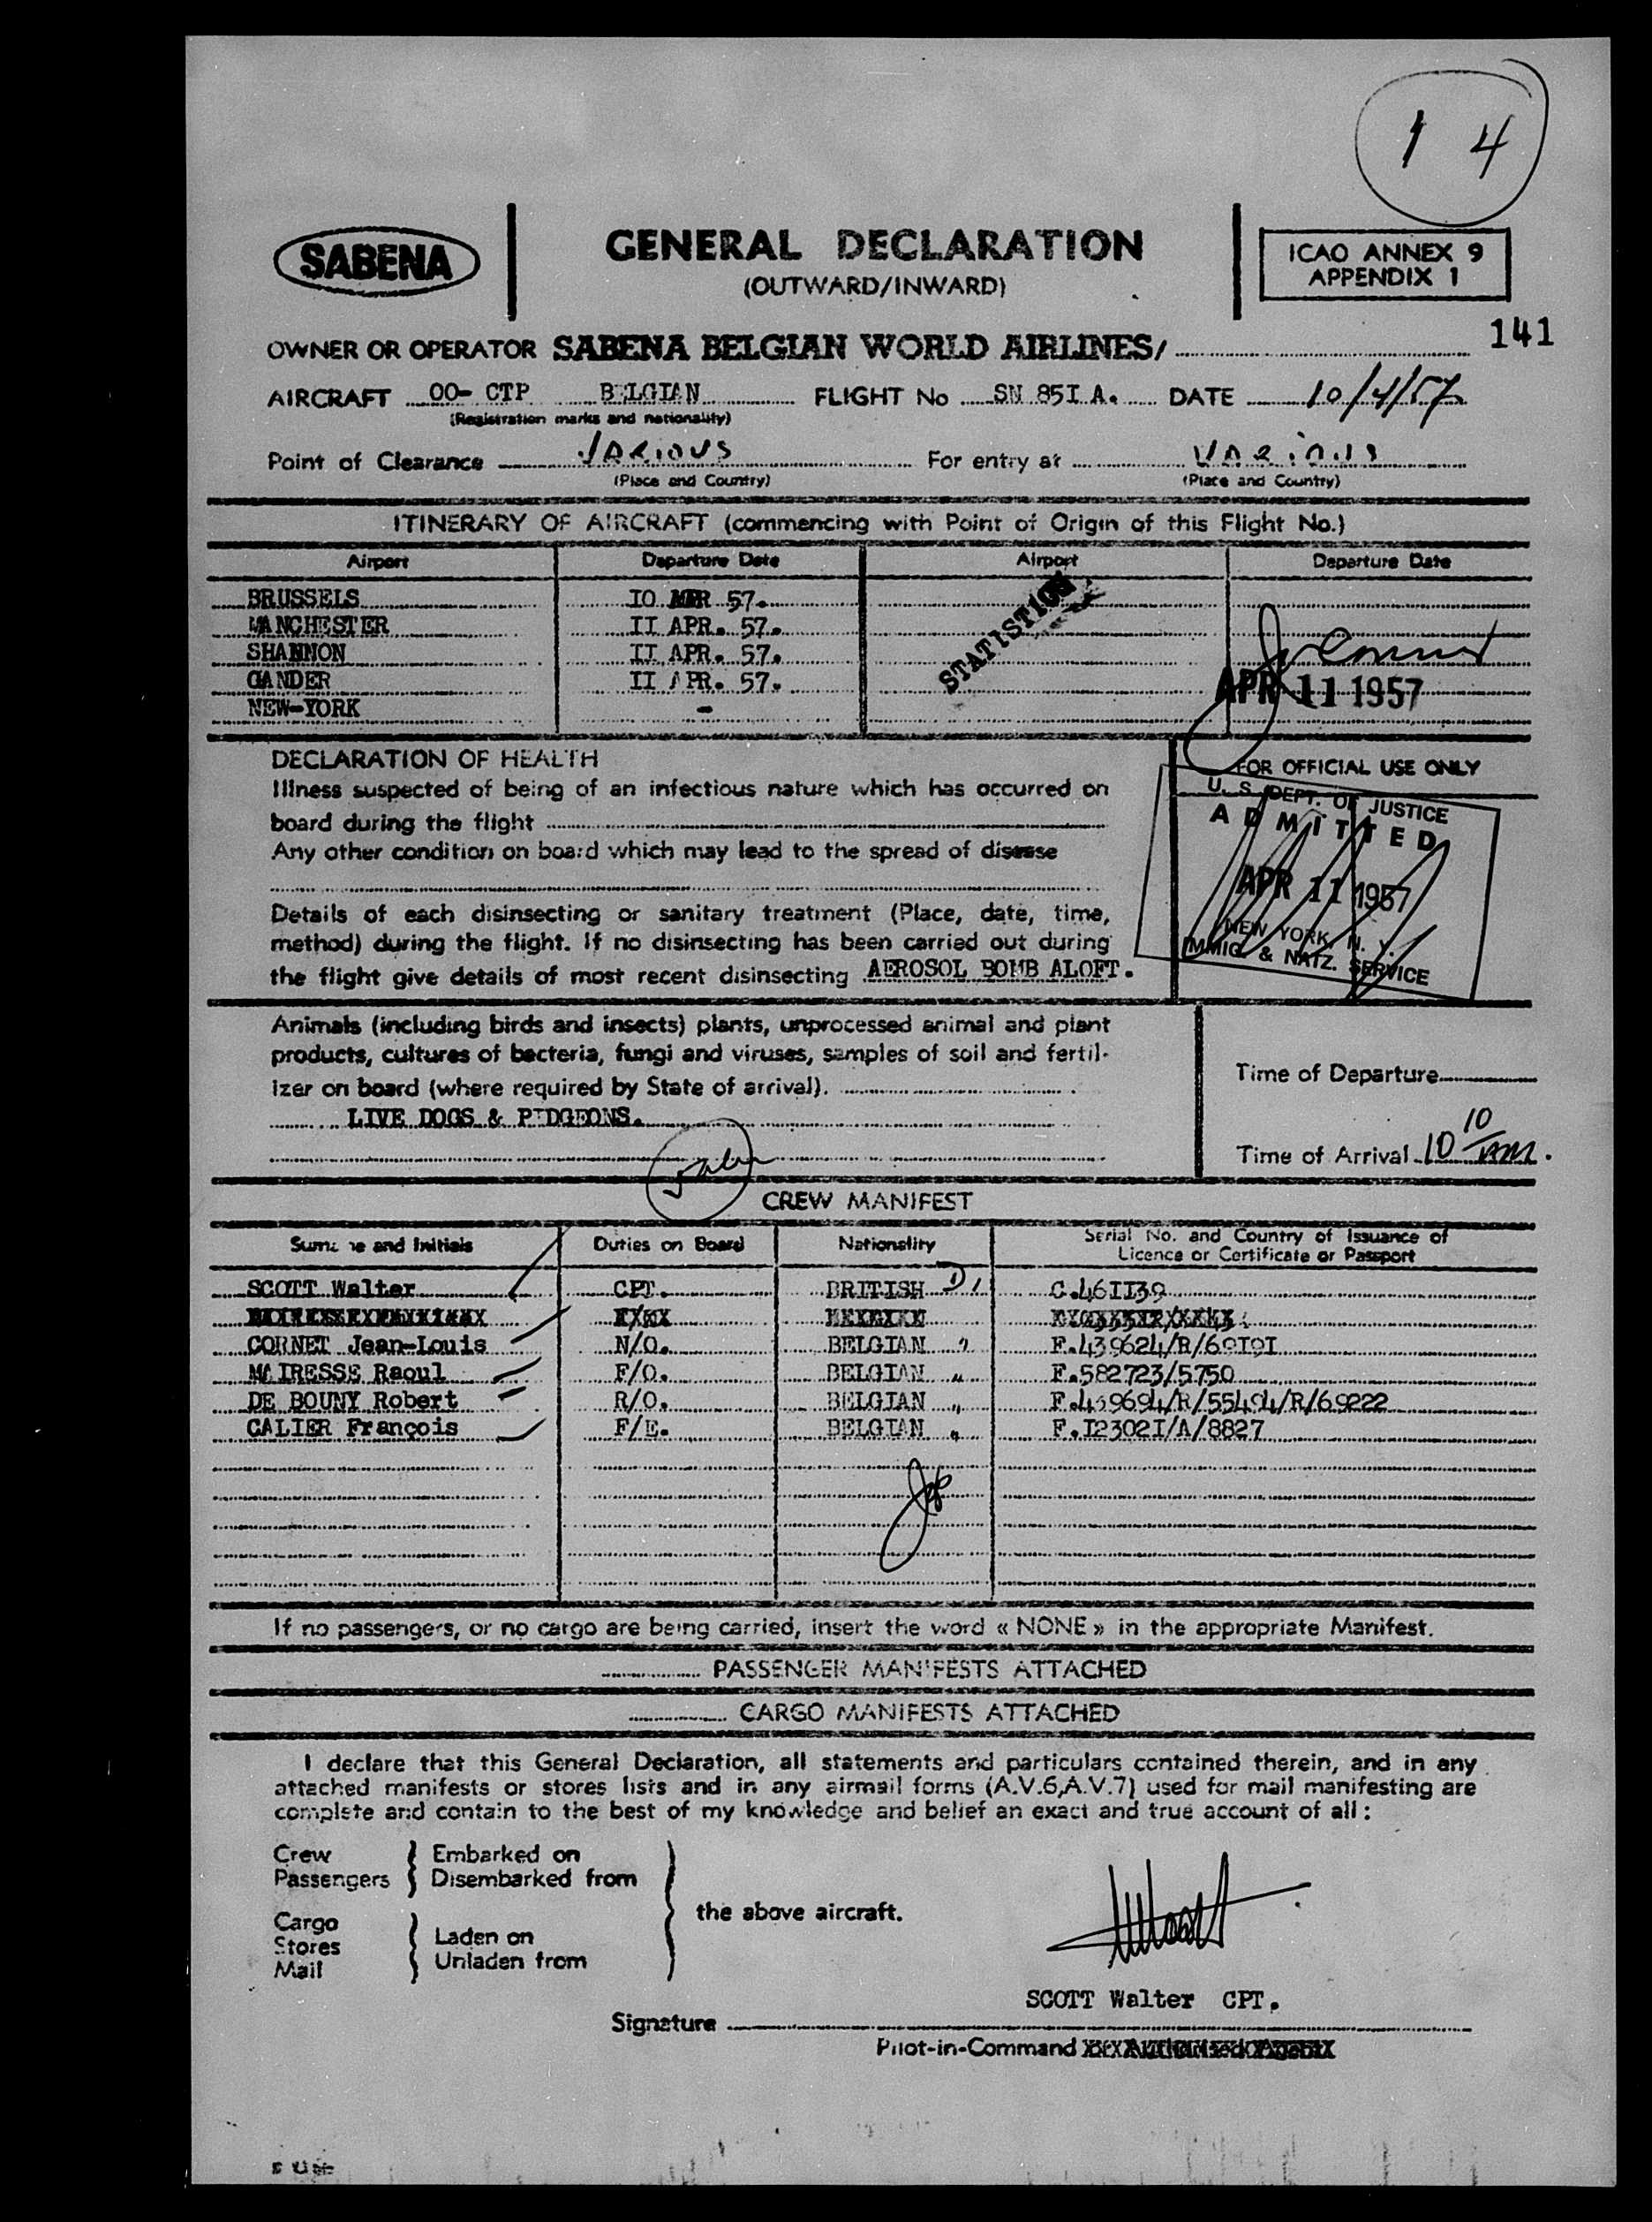 1 4
SABENA
GENERAL DECLARATION
(OUTWARD/INWARD)
ICAO ANNEX 9
APPENDIX 1
141
OWNER OR OPERATOR SABENA BELGIAN WORLD AIRLINES/
AIRCRAFT OO- CTP BELGIAN FLIGHT No SN 85I A. DATE 10/4/57
(Registration marks and nationality)
Point of Clearance VARIOUS For entry at VARIOUS
(Place and Country) (Place and Country)
ITINERARY OF AIRCRAFT (commencing with Point of Origin of this Flight No.)
Airport Departure Date Airport Departure Date
BRUSSELS IO 57.
MANCHESTER II APR. 57.
SHANNON II APR. 57.
GANDER II APR. 57.
NEW-YORK -
STATISTICS
APR 11 1957
DECLARATION OF HEALTH
Illness suspected of being of an infectious nature which has occurred on
board during the flight
Any other condition on board which may lead to the spread of disease
Details of each disinsecting or sanitary treatment (Place, date, time,
method) during the flight. If no disinsecting has been carried out during
the flight give details of most recent disinsecting AEROSOL BOMB ALOFT.
FOR OFFICIAL USE ONLY
U. S. DEPT. OF JUSTICE
ADMITTED
APR 11 1957
NEW YORK, N. Y.
IMMIG. & NATZ. SERVICE
Animals (including birds and insects) plants, unprocessed animal and plant
products, cultures of bacteria, fungi and viruses, samples of soil and fertil-
izer on board (where required by State of arrival).
LIVE DOGS & PIDGEONS.
Time of Departure
Time of Arrival 10 10 AM.
CREW MANIFEST
Surname and Initials Duties on Board Nationality Serial No. and Country of Issuance of
Licence or Certificate or Passport
SCOTT Walter CPT. BRITISH D1 C.46II39
CORNET Jean-Louis N/O. BELGIAN " F.439624/R/69I9I
MAIRESSE Raoul F/O. BELGIAN " F.582723/5750
DE BOUNY Robert R/O. BELGIAN " F.439694/R/55494/R/69222
CALIER François F/E. BELGIAN " F.I2302I/A/8827
If no passengers, or no cargo are being carried, insert the word « NONE » in the appropriate Manifest.
PASSENGER MANIFESTS ATTACHED
CARGO MANIFESTS ATTACHED
I declare that this General Declaration, all statements and particulars contained therein, and in any
attached manifests or stores lists and in any airmail forms (A.V.6,A.V.7) used for mail manifesting are
complete and contain to the best of my knowledge and belief an exact and true account of all :
Crew
Passengers
Embarked on
Disembarked from
Cargo
Stores
Mail
Laden on
Unladen from
the above aircraft.
SCOTT Walter CPT.
Signature
Pilot-in-Command